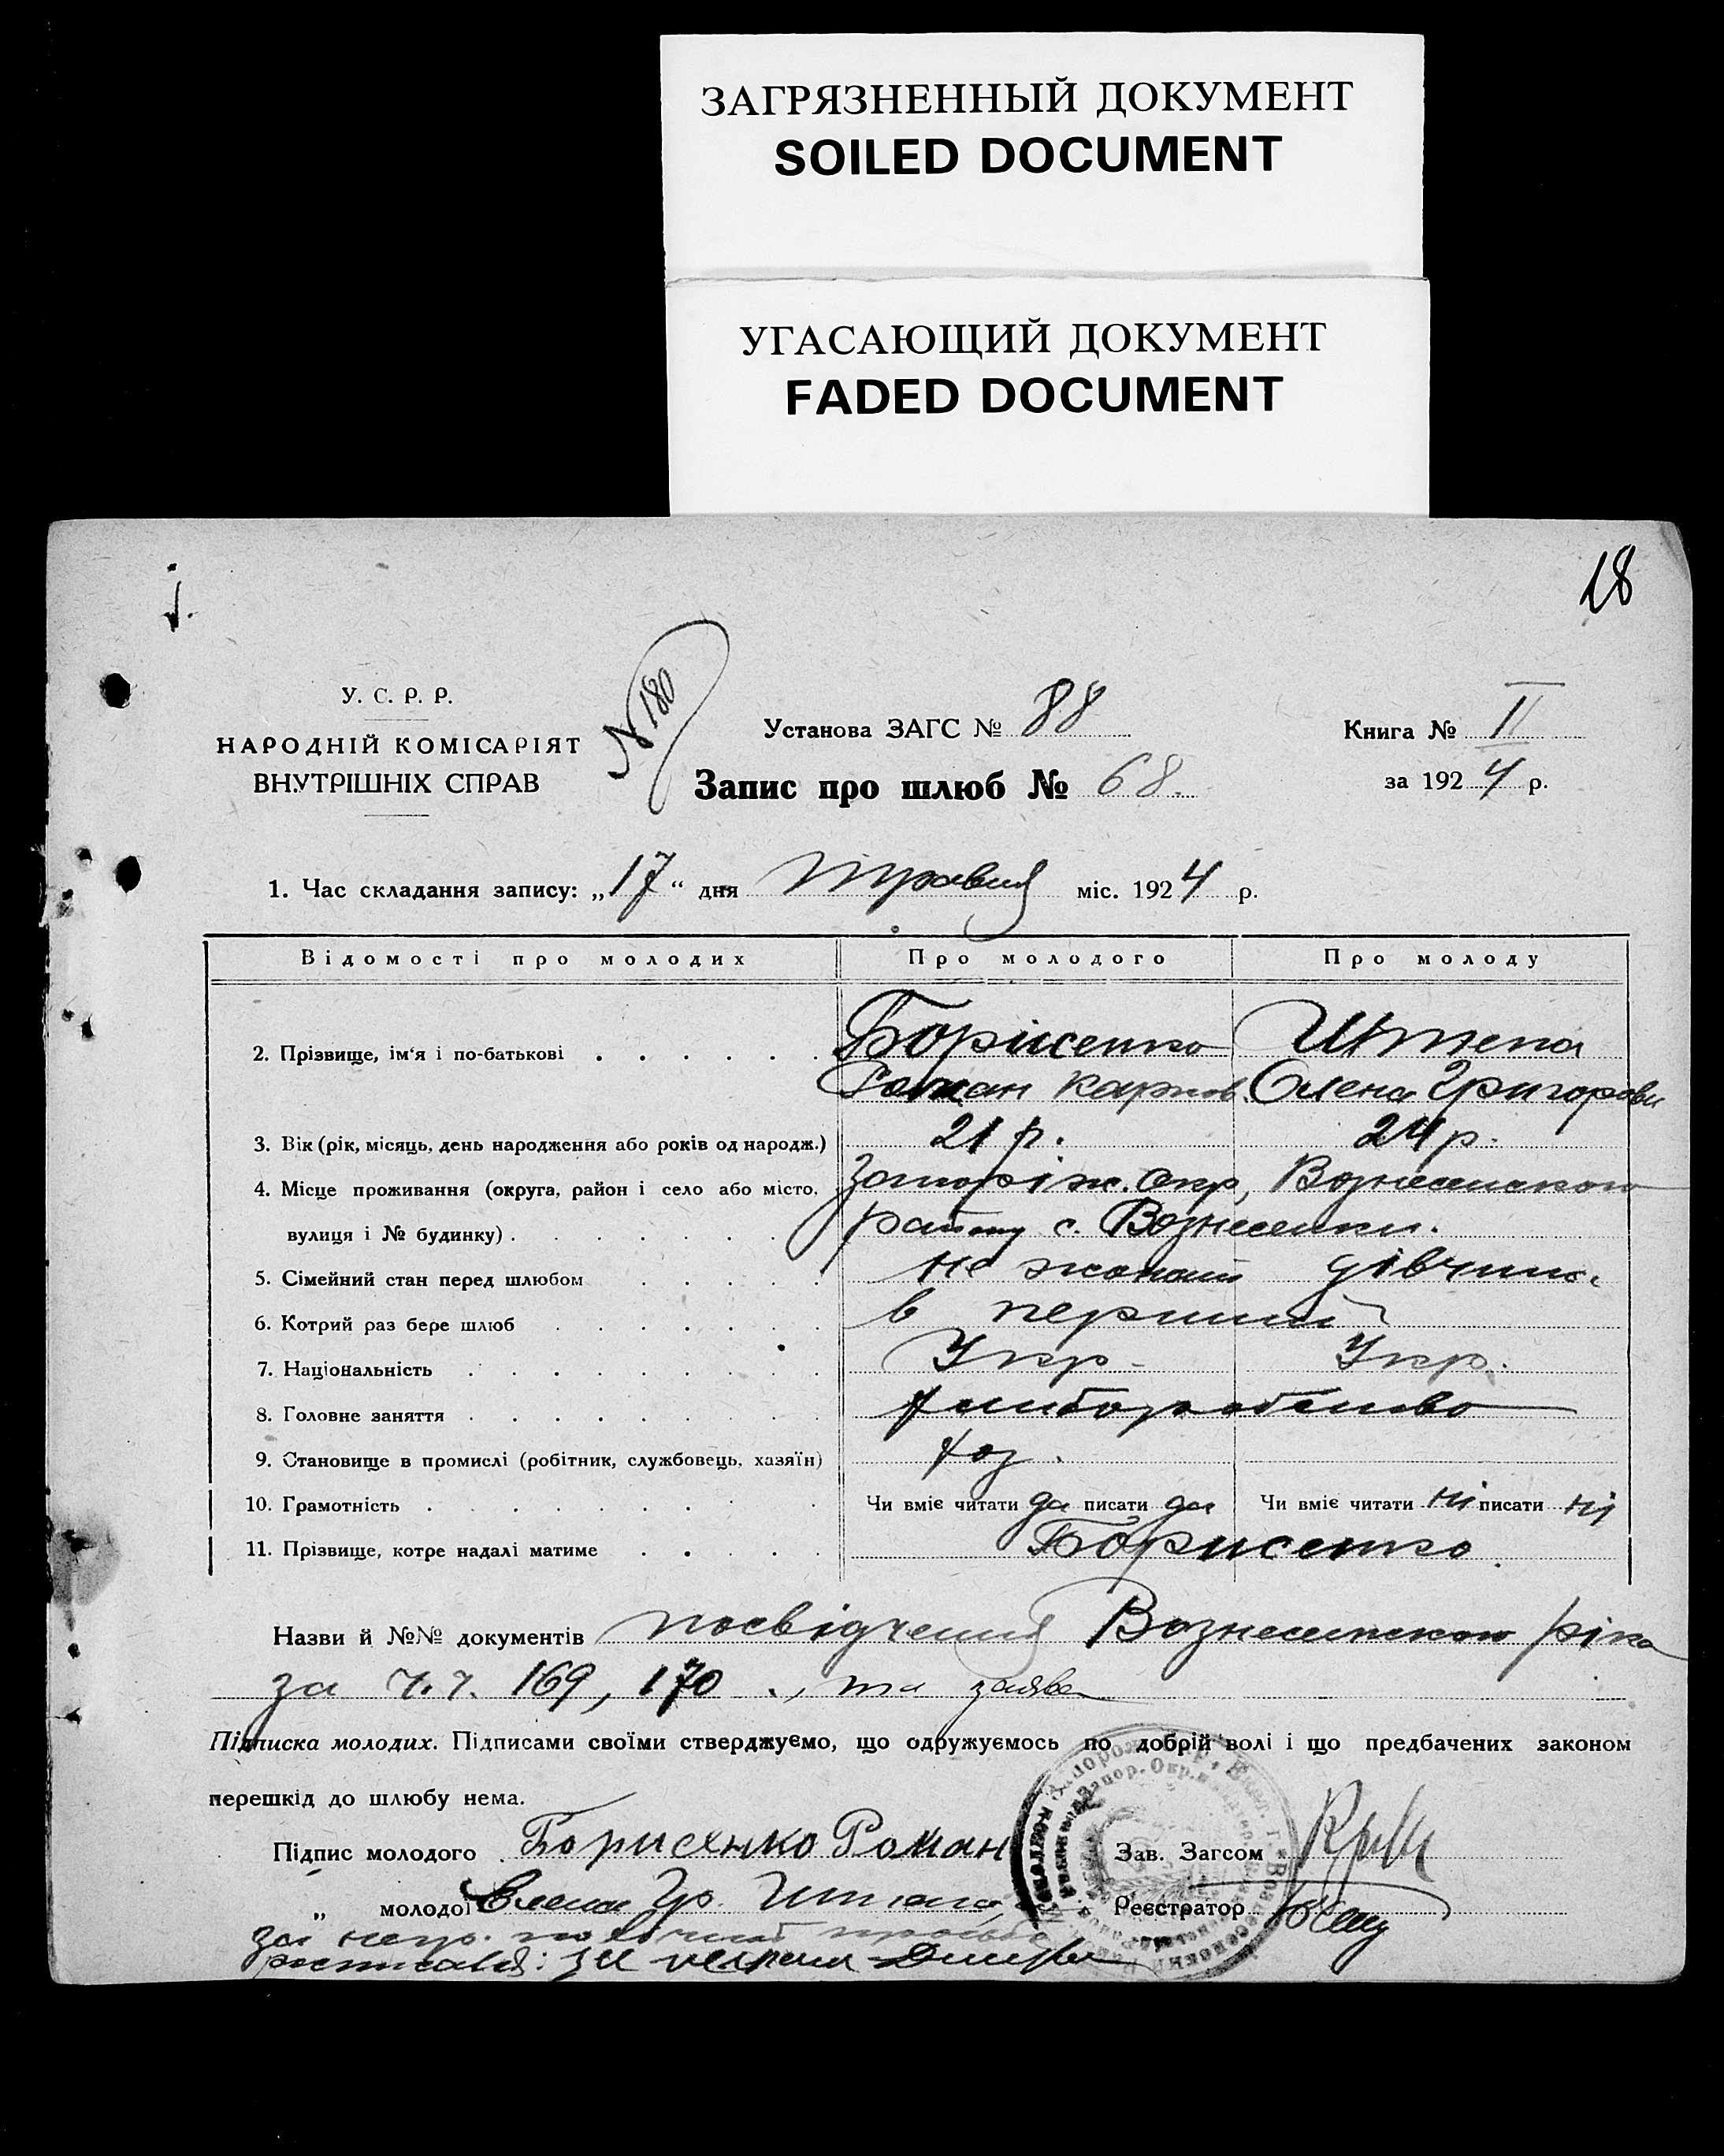 ЗАГРЯЗНЕННЫЙ ДОКУМЕНТ
SOILED DOCUMENT
УГАСАЮЩИЙ ДОКУМЕНТ
FADED DOCUMENT
18
У. С. Р. Р.
НАРОДНІЙ КОМІСАРІЯТ
ВНУТРІШНІХ СПРАВ
N 180
Установа ЗАГС № 88
Запис про шлюб № 68.
Книга № II
за 1924 р.
1. Час складання запису: „17“ дня травня міс. 1924 р.
Відомості про молодих Про молодого Про молоду
2. Прізвище, ім'я і по-батькові Борисенко
Роман Карпов. Олена Григорови
3. Вік (рік, місяць, день народження або років од народж.) 21 р. 24 р.
4. Місце проживання (округа, район і село або місто, Запоріж. окр, Вознесенского
вулиця і № будинку) району с. Вознесенки.
5. Сімейний стан перед шлюбом не жонат дівчина
6. Котрий раз бере шлюб в перший
7. Національність Укр. Укр.
8. Головне заняття хлиборобство
9. Становище в промислі (робітник, службовець, хазяїн) хоз.
10. Грамотність Чи вміє читати да писати да Чи вміє читати ні писати ні
11. Прізвище, котре надалі матиме Борисенко
Назви й №№ документів посвідчення Вознесенского ріка
за ч.ч. 169, 170 ., та заява
Підписка молодих. Підписами своїми стверджуємо, що одружуємось по добрій волі і що предбачених законом
перешкід до шлюбу нема.
Підпис молодого Борисенко Роман
Зав. Загсом
„ молодої Елена Гр.
Реєстратор
за непр.